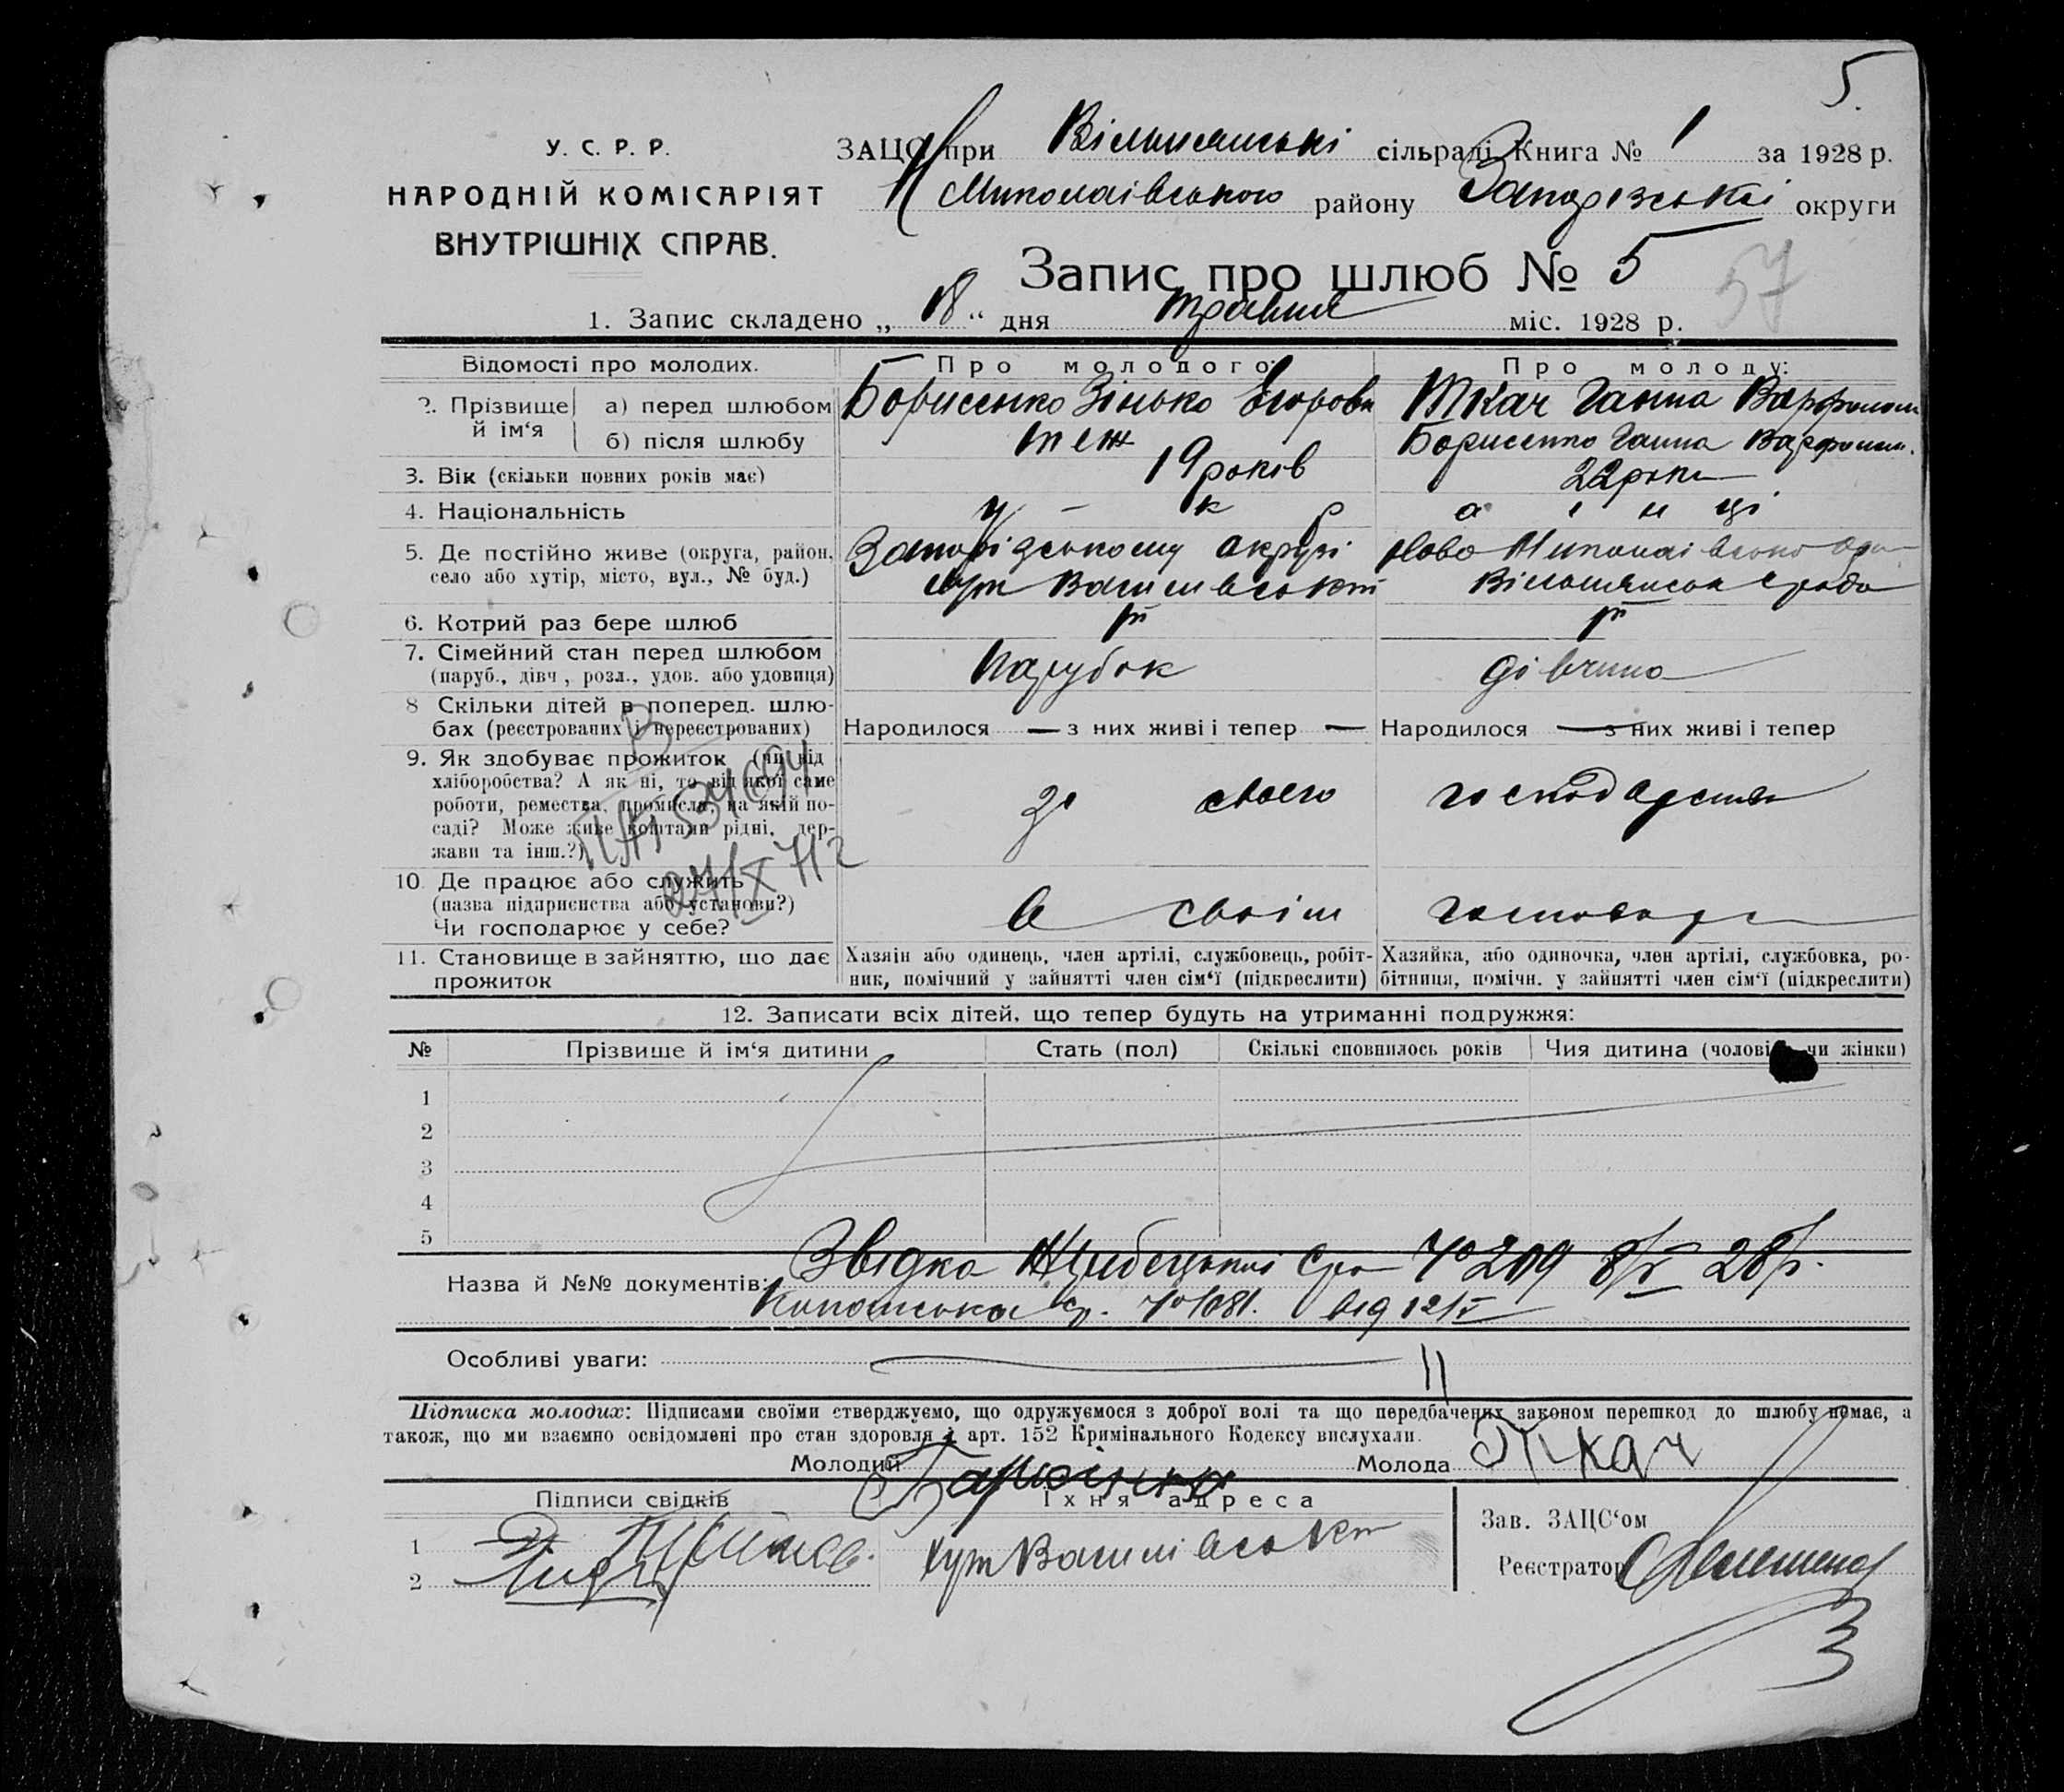 5.
У. С. Р. Р.
НАРОДНІЙ КОМІСАРІЯТ
ВНУТРІШНІХ СПРАВ.
ЗАЦС при Вільнянські сільраді Книга № 1 за 1928 р.
Н Миколаівського району Запорізької округи
Запис про шлюб № 5
57
1. Запис складено „ 18 “ дня травня міс. 1928 р.
Відомості про молодих. Про молодого: Про молоду:
2. Прізвище й ім‘я а) перед шлюбом Борисенко Зінько Егоров Ткач Ганна Варфолом
б) після шлюбу теж Борисенко Ганна Варфолом.
3. Вік (скільки повних років має) 19 років 22 роки
4. Національність у - к р а ї н ці
5. Де постійно живе (округа, район, село або хутір, місто, вул., № буд.) Запорізському окрузі Ново Миколаівського
хут Васильвський
6. Котрий раз бере шлюб
7. Сімейний стан перед шлюбом парубок дівчина
(паруб., дівч., розл., удов. або удовиця)
8 Скільки дітей в поперед. шлю-
бах (реєстрованих і нереєстрованих) Народилося — з них живі і тепер — Народилося — з них живі і тепер
9. Як здобуває прожиток (чи від
хліборобства? А як ні, то від якої саме
роботи, ремества, промисла, на якій по-
саді? Може живе коштами рідні, дер-
жави та інш.?)
зі своего господарства
10. Де працює або служить
(назва підприєнства або установи?)
Чи господарює у себе?
в своім господар
11. Становище в зайняттю, що дає
прожиток
Хазяїн або одинець, член артілі, службовець, робіт-
ник, помічний у зайнятті член сім‘ї (підкреслити)
Хазяйка, або одиночка, член артілі, службовка, ро-
бітниця, помічн. у зайнятті член сім‘ї (підкреслити)
12. Записати всіх дітей, що тепер будуть на утриманні подружжя:
№ Прізвище й ім‘я дитини Стать (пол) Скількі сповнилось років Чия дитина (чолові чи жінки)
1
2
3
4
5
Назва й №№ документів: Звідка № 209 8/V 28р.
№ 1081. від 12/V
Особливі уваги:
Підписка молодих: Підписами своїми стверджуємо, що одружуємося з доброї волі та що передбачених законом перешкод до шлюбу немає, а
також, що ми взаємно освідомлені про стан здоровля і арт. 152 Кримінального Кодексу вислухали.
Молодий Молода Ткач
Підписи свідків Їхня адреса
Зав. ЗАЦС‘ом
1 хут Васильвський
2
Реєстратор